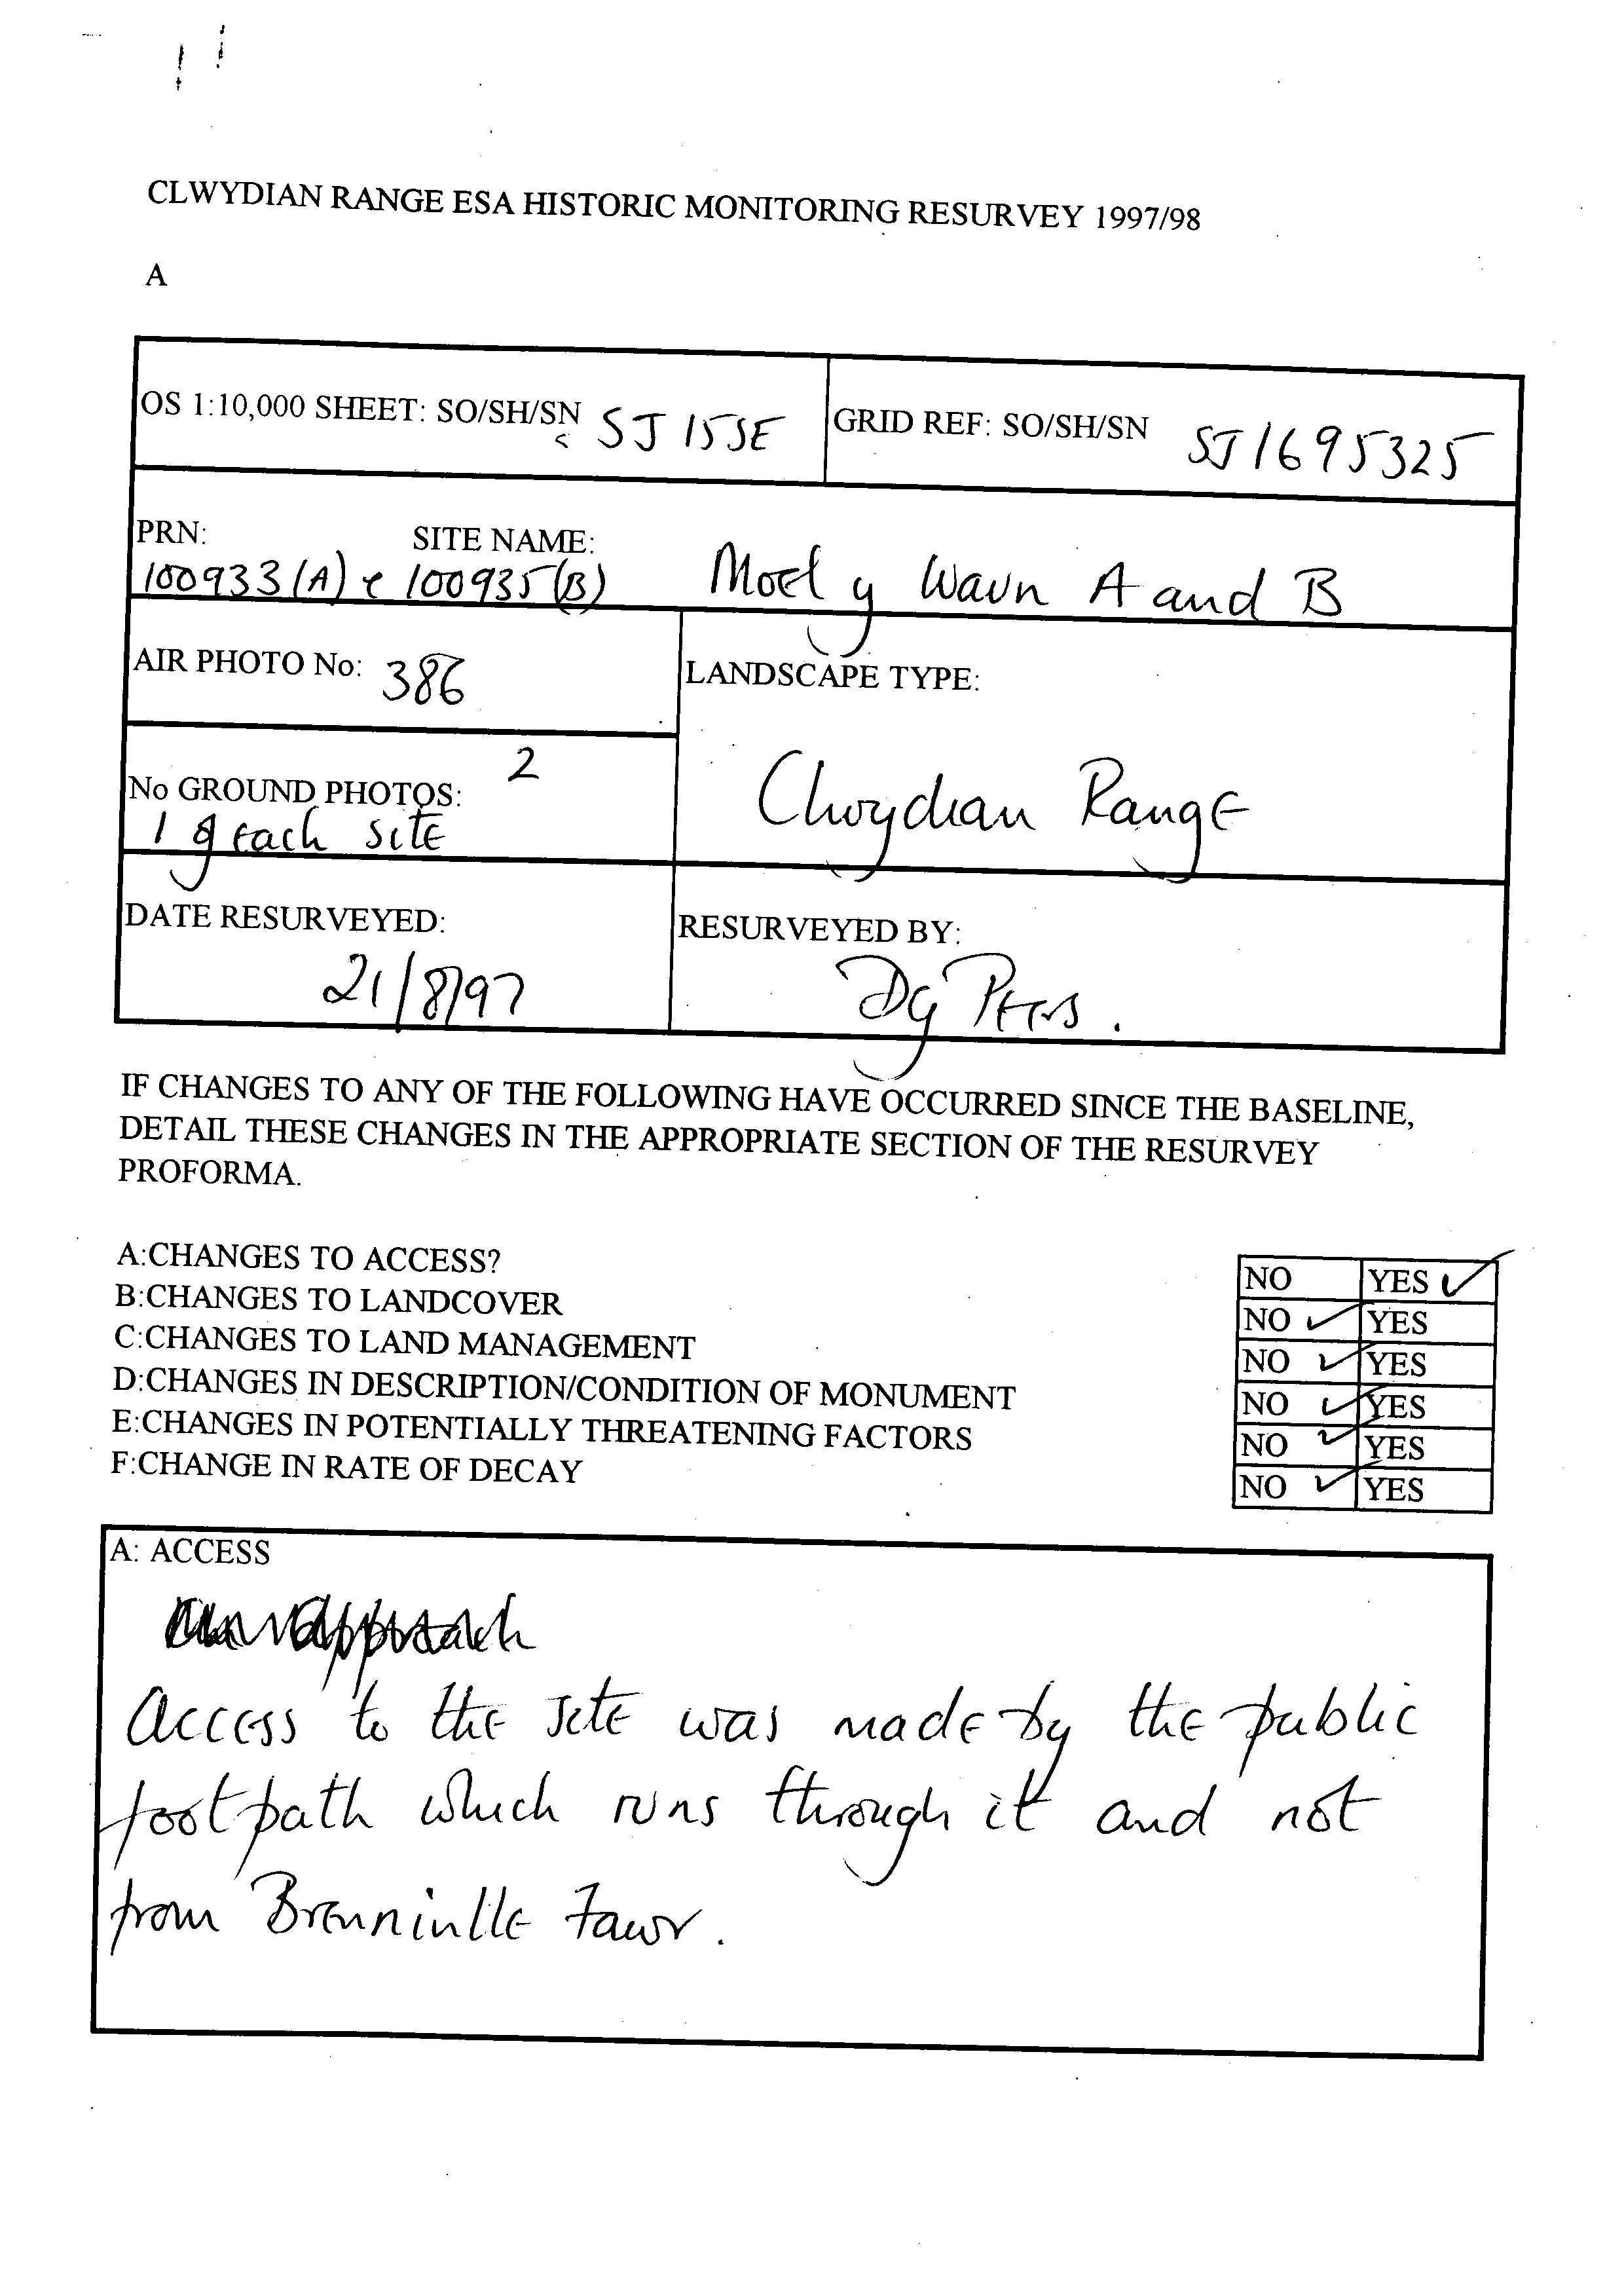 CLWYDIAN RANGE ESA HISTORIC MONITORING RESURVEY 1997/98
A
OS 1:10,000 SHEET: SO/SH/SN SJ 15 SE
GRID REF: SO/SH/SN SJ 1695325
PRN: SITE NAME:
100933 (A) & 100935 (B) Moel y Waun A and B
AIR PHOTO No: 386
LANDSCAPE TYPE:
Clwydian Range
No GROUND PHOTOS: 2
1 of each site
DATE RESURVEYED:
21/8/97
RESURVEYED BY:
IF CHANGES TO ANY OF THE FOLLOWING HAVE OCCURRED SINCE THE BASELINE,
DETAIL THESE CHANGES IN THE APPROPRIATE SECTION OF THE RESURVEY
PROFORMA.
A:CHANGES TO ACCESS? NO YES ✓
B:CHANGES TO LANDCOVER NO ✓ YES
C:CHANGES TO LAND MANAGEMENT NO ✓ YES
D:CHANGES IN DESCRIPTION/CONDITION OF MONUMENT NO ✓ YES
E:CHANGES IN POTENTIALLY THREATENING FACTORS NO ✓ YES
F:CHANGE IN RATE OF DECAY NO ✓ YES
A: ACCESS
approach
Access to the site was made by the public
footpath which runs through it and not
from Brenninlle Fawr.